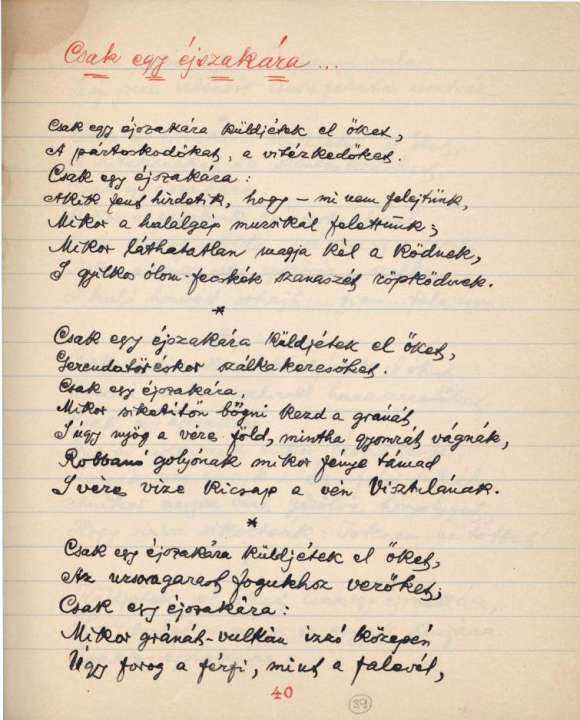 Csak egy éjszakára...
Csak egy éjszakára küldjétek el őket,
A pártoskodókat, a vitézkedőket.
Csak egy éjszakára:
Akik fent hirdetik, hogy – mi nem felejtünk,
Mikor a halálgép muzsikál felettünk;
Mikor láthatatlan magja kél a ködnek,
S gyilkos ólom-fecskék szanaszét röpködnek.
*
Csak egy éjszakára küldjétek el őket,
Gerendatöréskor szálka keresőket.
Csak egy éjszakára,
Mikor siketitőn bőgni kezd a gránát
S úgy nyög a véres föld, mintha gyomrát vágnák,
Robbanó golyónak mikor fénye támad
S véres vize kicsap a vén Visztulának.
*
Csak egy éjszakára küldjétek el őket,
Az uzsoragarast fogukhoz verőket;
Csak egy éjszakára:
Mikor gránát-vulkán izzó közepén
Úgy forog a férfi, mint a falevél,
40
39